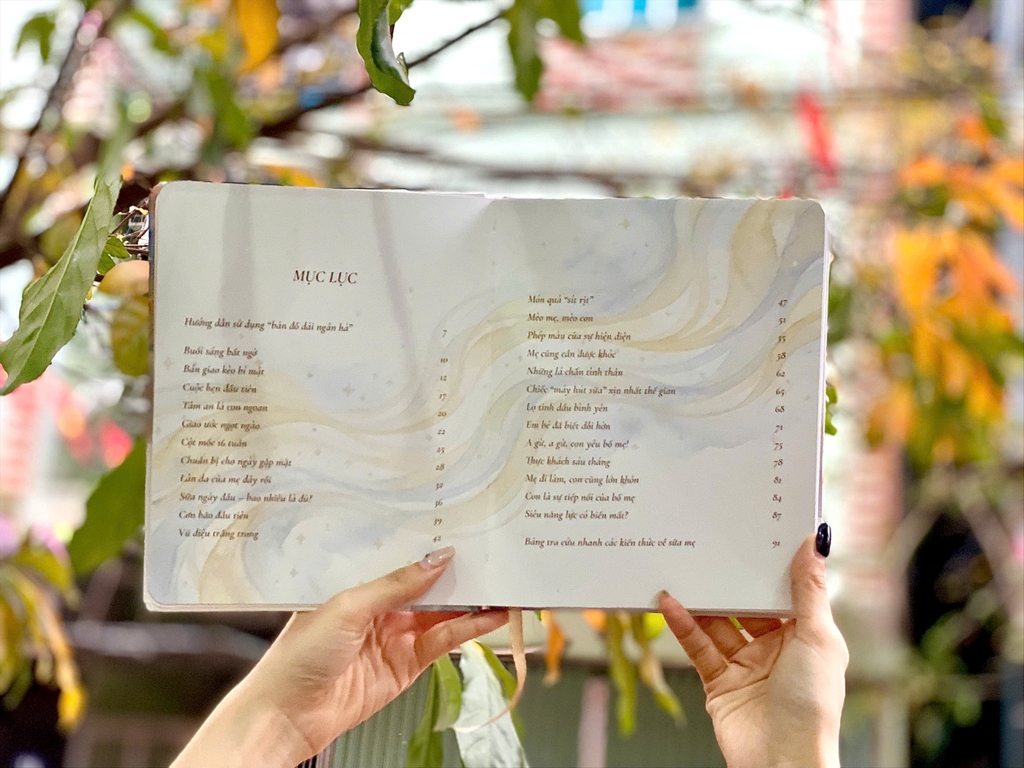 MỤC LỤC
Hướng dẫn sử dụng “bản đồ dải ngân hà” 7
Buổi sáng bất ngờ 10
Bản giao kèo bí mật 12
Cuộc hẹn đầu tiên 17
Tâm an là con ngoan 20
Giao ước ngọt ngào 22
Cột mốc 16 tuần 25
Chuẩn bị cho ngày gặp mặt 28
Làn da của mẹ đây rồi 32
Sữa ngày đầu – bao nhiêu là đủ? 36
Cơn bão đầu tiên 39
Vũ điệu trăng trong 42
Món quà “sít rịt” 47
Mèo mẹ, mèo con 51
Phép màu của sự hiện diện 55
Mẹ cũng cần được khóc 58
Những lá chắn tinh thần 62
Chiếc “máy hút sữa” xịn nhất thế gian 65
Lọ tinh dầu bình yên 68
Em bé đã biết dỗi hờn 71
A gừ, a gừ, con yêu bố mẹ! 75
Thực khách sáu tháng 78
Mẹ đi làm, con cũng lớn khôn 81
Con là sự tiếp nối của bố mẹ 84
Siêu năng lực có biến mất? 87
Bảng tra cứu nhanh các kiến thức về sữa mẹ 91